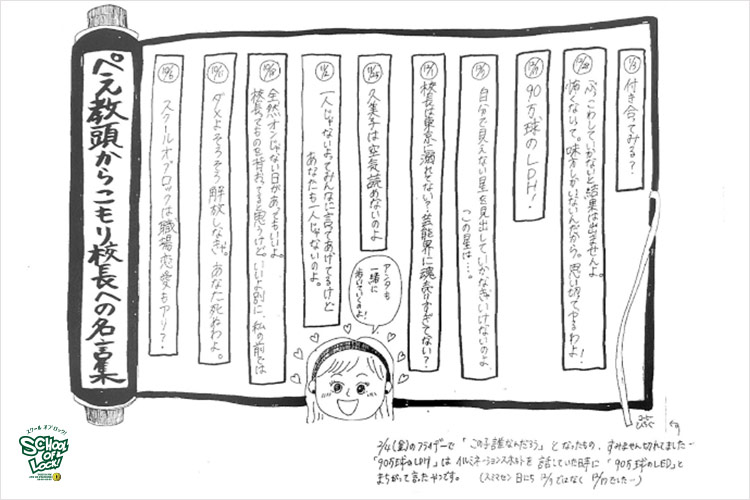 ぺえ教頭からこもり校長への名言集
1/13
付き合ってみる?
12/28
ぶっこわしていかないと結果は出ませんよ。
怖くないって。味方しかいないんだから。思い切ってやるわよ!
90万球のLDH!
自分で見えない星を見出していかなきゃいけないのよ
この星は…。
校長は東京に溺れてない?芸能界に魂売りすぎてない?
久美子は空気読めないのよ
一人じゃないよってみんなに言ってあげてるけど
あなたも一人じゃないのよ。
全然オンじゃない日があってもいいよ。
校長ってものを背おってると思うけど、いいよ別に、私の前では
ダメよそろそろ解放しなきゃ。あなた死ぬわよ。
10/6
スクールオブロックは職場恋愛もアリ?
アンタも
一緒に
歩いていくのよ!
2/4(金)のフライデーで「この子誰なんだろう」となったもの、すみません切れてました…
「90万球のLDH」はイルミネーションスポットを話していた日時に「90万球のLED」と
まちがって言ったやつです。
スクール オブ ロック!
SCHOOL OF LOCK!